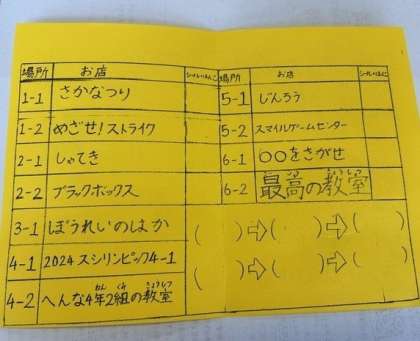 場所 お店 シールorはんこ
1-1 さかなつり
1-2 めざせ!ストライク
2-1 しゃてき
2-2 ブラックボックス
3-1 ぼうれいのはか
4-1 2024スシリンピック4-1
4-2 へんな4年2組の教室
ねん くみ きょうしつ
場所 お店
5-1 じんろう
5-2 スマイルゲームセンター
6-1 〇〇をさがせ
6-2 最高の教室
( )⇨( )⇨( )
( )⇨( )⇨( )